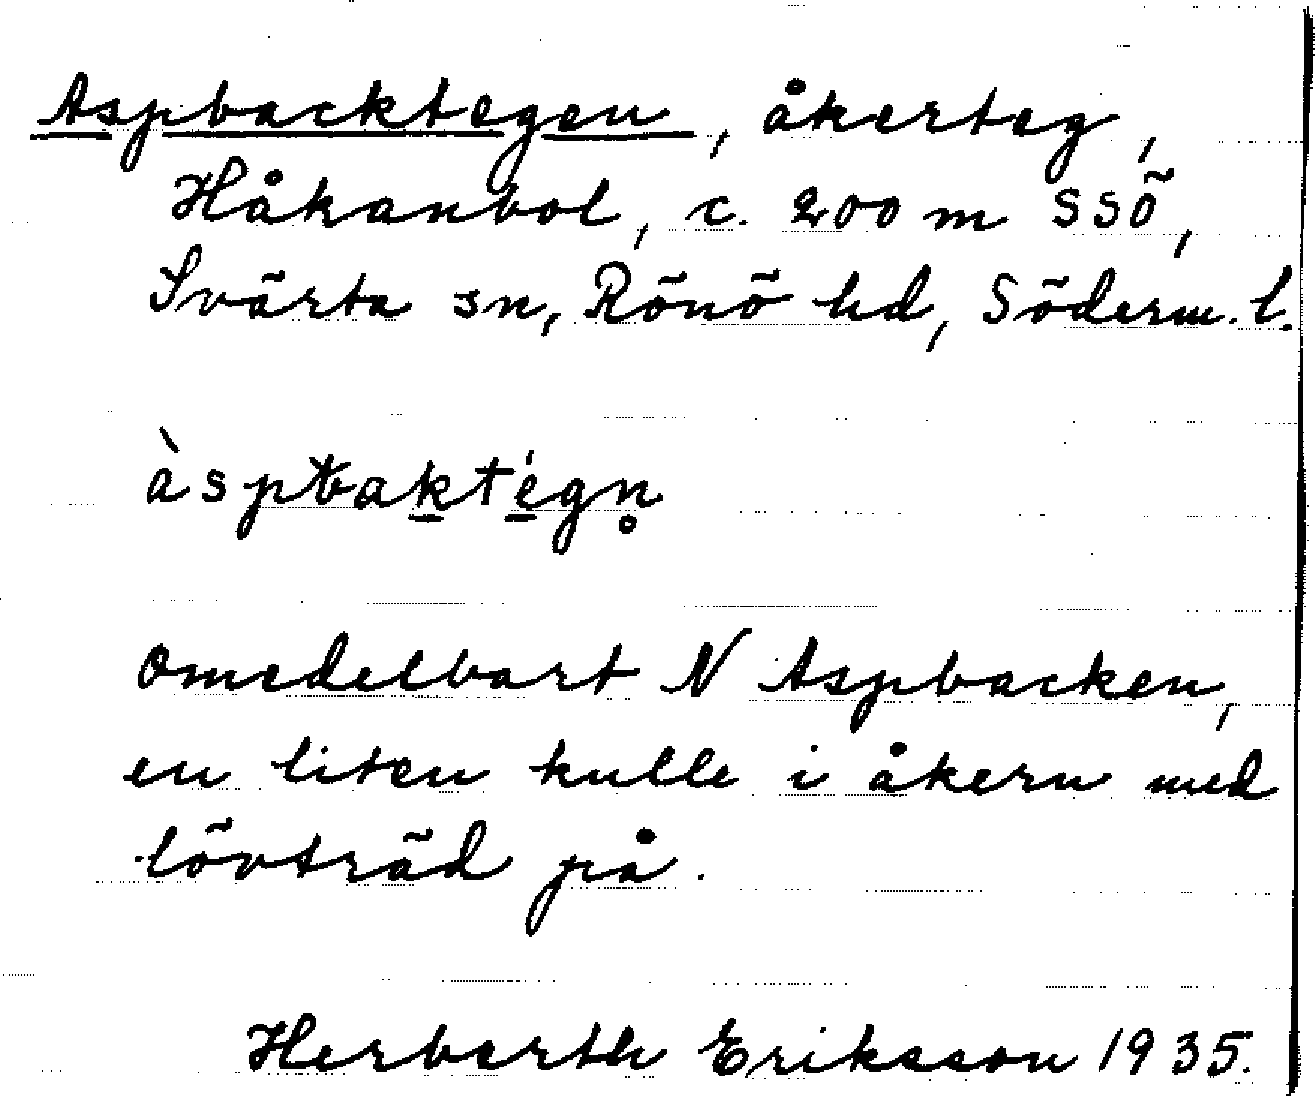 Aspbacktegen, åkerteg,
Håkanbol, c. 200 m SSÖ,
Svärta sn, Rönö hd, Söderm. l.
àspbak̲té̲gn̥
omedelbart N Aspbacken,
en liten kulle i åkern med
lövträd på.
Herberth Eriksson 1935.